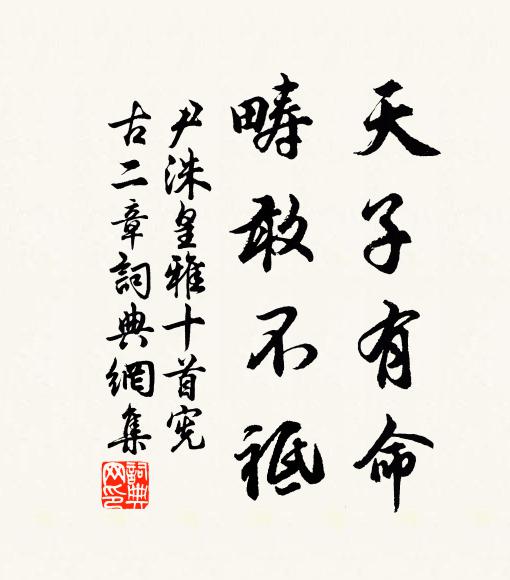 天子有命
疇敢不祗
尹洙皇雅十首憲
古二章詞典網集